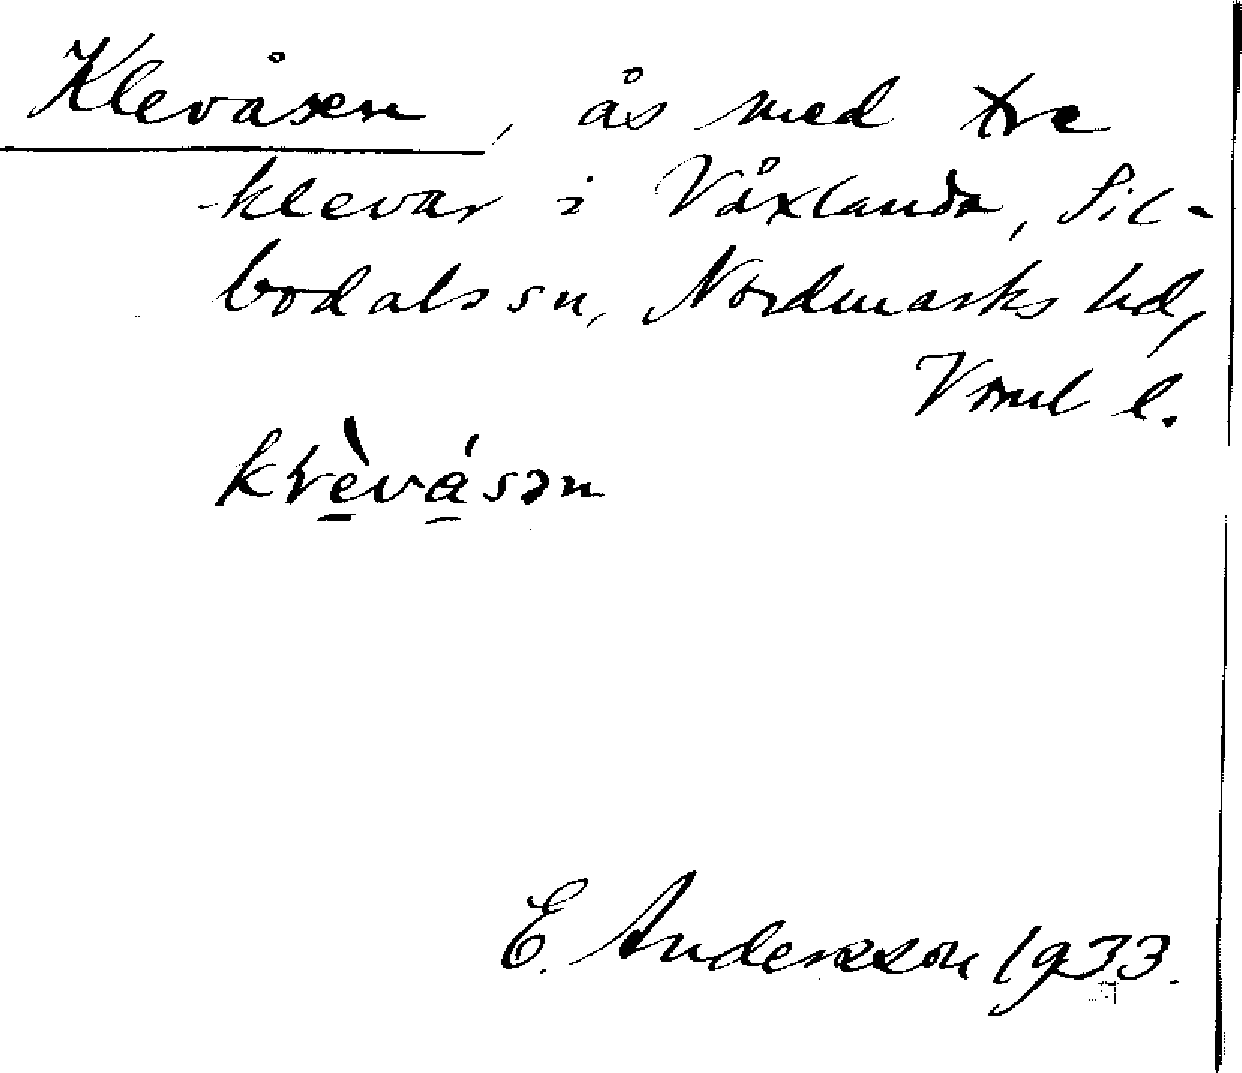 Klevåsen, ås med tre
klevar i Våxlanda, Sil-
bodals sn, Nordmarks hd,
Vrml l.
krѐvásən
E. Andersson 1933.